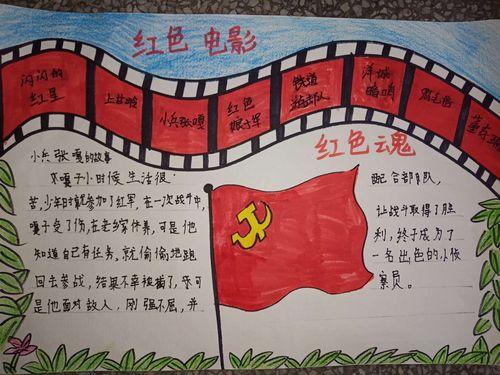 红色 电影
闪闪的
红星
上甘岭
小兵张嘎
红色
娘子军
铁道
游击队
洋城
暗哨
董存瑞
红色云魂
小兵张嘎的故事
嘎子小时侯生活很
苦,少年时就参加了红军,在一次战斗中,
嘎子受了伤,在老乡家休养,可是他
知道自己有任务,就偷偷地跑
回去参战,结果不幸被捕了,
是他面对敌人,刚强不屈,并
配合部队,
让战斗取得了胜
利,终于成为了
一名出色的小侦
察员。